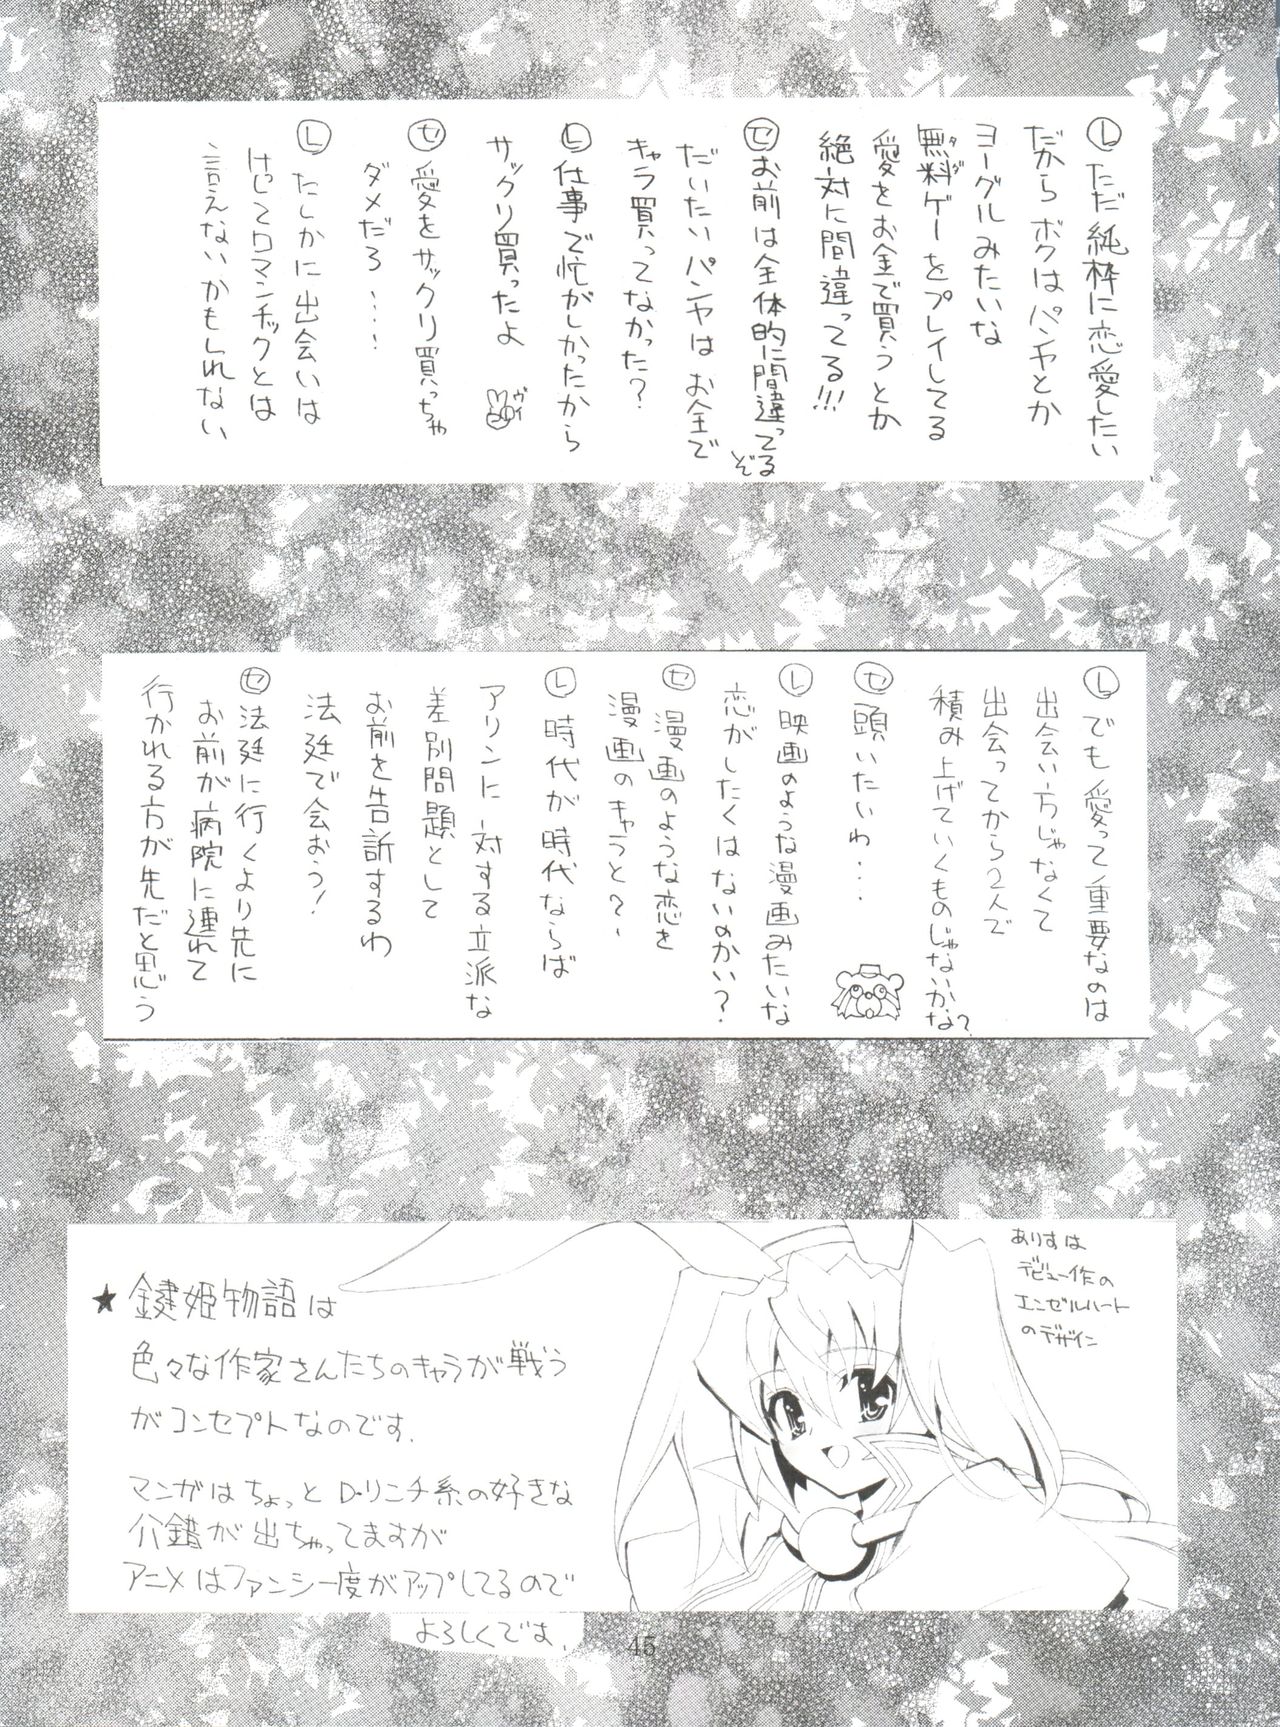 Ⓛただ純粋に恋愛したい
だからボクはパンヤとか
ヨーグルみたいな
無料ゲーをプレイしてる
タダ
愛をお金で買うとか
絶対に間違ってる!!!
セお前は全体的に間違ってるぞ
だいたいパンヤはお金で
キャラ買ってなかった?
Ⓛ仕事で忙がしかったから
サックリ買ったよ
ヴイ
セ愛をサックリ買っちゃ
ダメだろ・・・・
Ⓛたしかに出会いは
けしてロマンチックとは
言えないかもしれない
Ⓛでも愛って重要なのは
出会い方じゃなくて
出会ってから2人で
積み上げていくものじゃないかな?
セ頭いたいわ・・・
Ⓛ映画のような漫画みたいな
恋がしたくはないのかい?
セ漫画のような恋を
漫画のキャラと?-
Ⓛ時代が時代ならば
アリンに対する立派な
差別問題として
お前を告訴するわ
法廷で会おう!
セ法廷に行くより先に
お前が病院に連れて
行かれる方が先だと思う
ありすは
デビュー作の
エンゼルハート
のデザイン
★鍵姫物語は
色々な作家さんたちのキャラが戦う
がコンセプトなのです.
マンガはちょっとD・リンチ系の好きな
介錯が出ちゃってますが
アニメはファンシー度がアップしてるので
よろしくです.
45